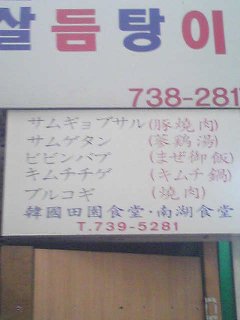 살듬탕이
738-281
サムギョプサル(豚燒肉)
サムゲタン (蔘鶏湯)
ビビンバブ (まぜ御飯)
キムチチゲ (キムチ鍋)
ブルコギ (燒肉)
韓國田園食堂·南湖食堂
T.739-5281